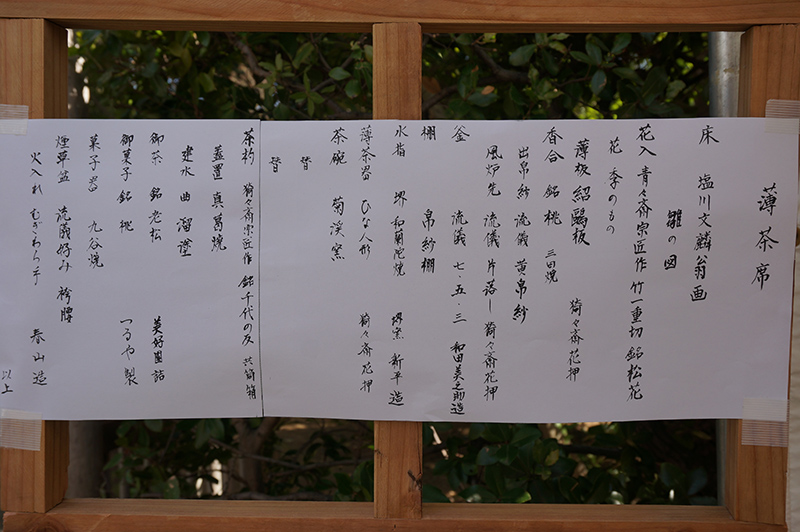 薄茶席
床 塩川文麟翁画
雛の図
花入 青々斎宗匠作 竹一重切 銘 松花
花 季のもの
薄板 紹鷗板
香合 銘 桃 三田焼 猗々斎花押
出帛紗 流儀 黄帛紗
風炉先 流儀 片落し 猗々斎花押
釜 流儀 七・五・三 和田美之助造
棚 帛紗棚
水指 堺 和蘭陀焼 堺窯 新平造
薄茶器 ひな人形 猗々斎花押
茶碗 菊渓窯
替
替
茶杓 猗々斎宗匠作 銘 千代の友 共筒箱
蓋置 真葛焼
建水 曲 溜塗
御茶 銘 老松 美好園詰
御菓子 銘 桃 つるや製
菓子器 九谷焼
煙草盆 流儀好み 袴腰
火入れ むぎわら手 春山造
以上